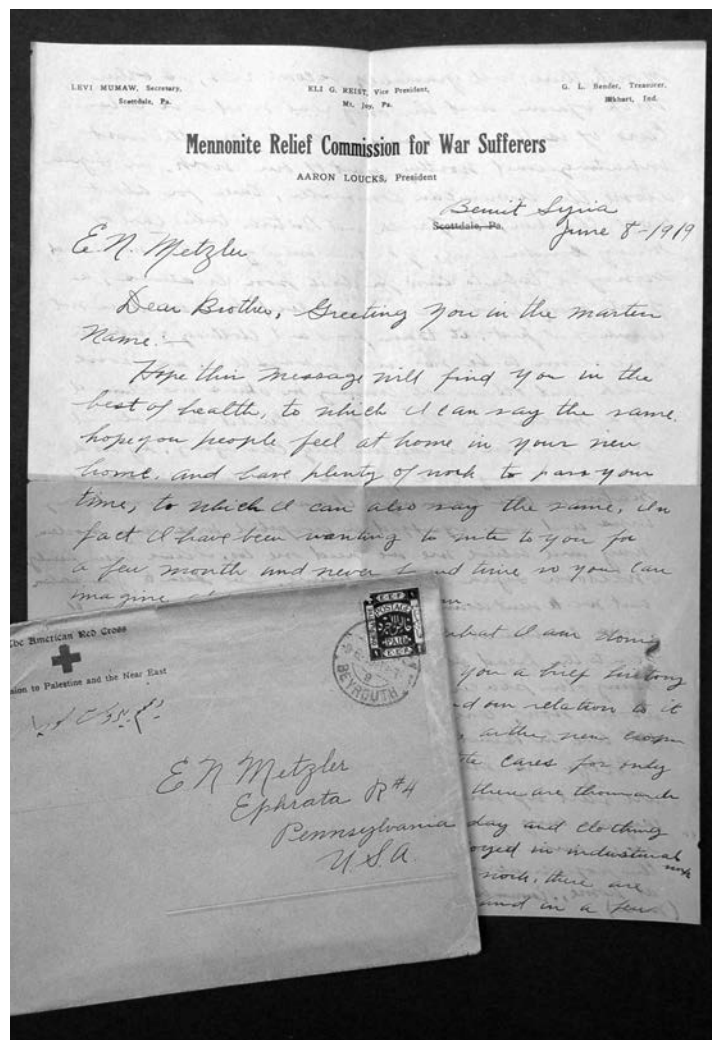 LEVI MUMAW, Secretary,
Scottdale, Pa.
ELI G. REIST, Vice President,
Mt. Joy, Pa.
G. L. Bender, Treasurer,
Elkhart, Ind.
Mennonite Relief Commission for War Sufferers
AARON LOUCKS, President
Beruit Syria
Scottdale, Pa.
June 8-1919
E. N. Metzler
Dear Brother, Greeting you in the master
Name:-
Hope this message will find you in the
best of health, to which I can say the same.
hope you people feel at home in your new
home, and have plenty of work to pass your
time, to which I can also say the same, In
fact I have been wanting to write to you for
a few month and never found time so you can
imagine
what I am doing
you a brief history
and our relation to it
cares for only
there are thousands
day and clothing
oyed in industrial work
work, there are
and in a few
The American Red Cross
sion to Palestine and the Near East
E.E.F.
POSTAGE
PAID
E.E.F.
BEYROUTH
E N Metzler
Ephrata R#4
Pennsylvania
U.S.A.